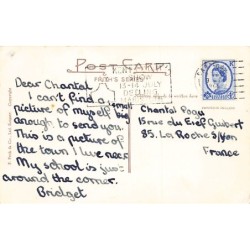 POST CARD
13-14 JULY
Dear Chantal
I can't find a small
picture of myself big
enough to send you.
This is a picture of
the town I live near.
My school is just
around the corner.
Bridget
Chantal
15 rue du
85. La Roche S/Yon
France